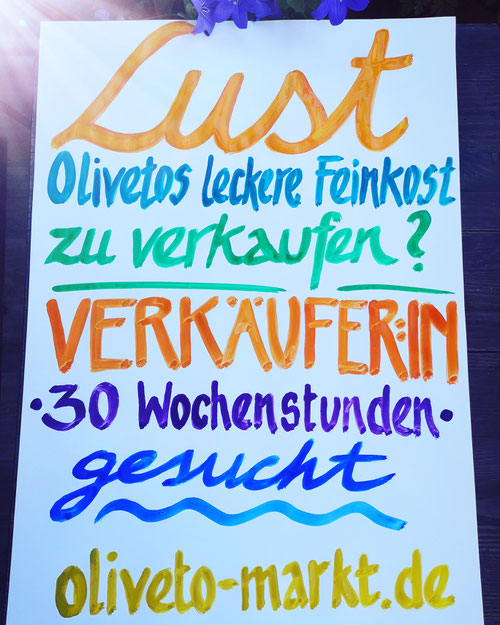 Lust
Olivetos leckere Feinkost
zu verkaufen?
VERKÄUFER:IN
·30 Wochenstunden·
gesucht
oliveto-markt.de